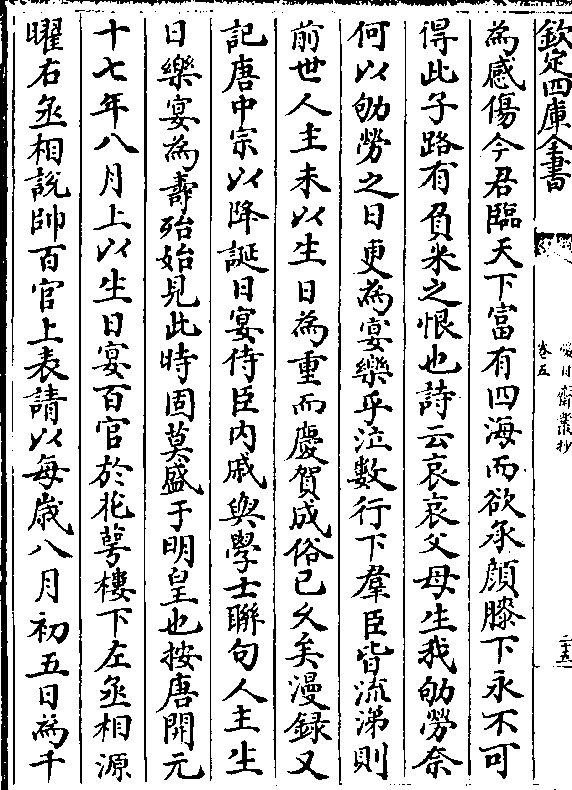 欽定四庫全書
愛日齋叢抄
卷五
二十五
為感傷今君臨天下富有四海而欲承顔膝下永不可
得此子路有負米之恨也詩云哀哀父母生我劬勞奈
何以劬勞之日更為宴樂乎泣數行下羣臣皆流涕則
前世人主未以生日為重而慶賀成俗已久矣漫録又
記唐中宗以降誕日宴侍臣内戚與學士聯句人主生
日樂宴為壽殆始見此時固莫盛于明皇也按唐開元
十七年八月上以生日宴百官於花萼樓下左丞相源
曜右丞相説帥百官上表請以每歲八月初五日為千